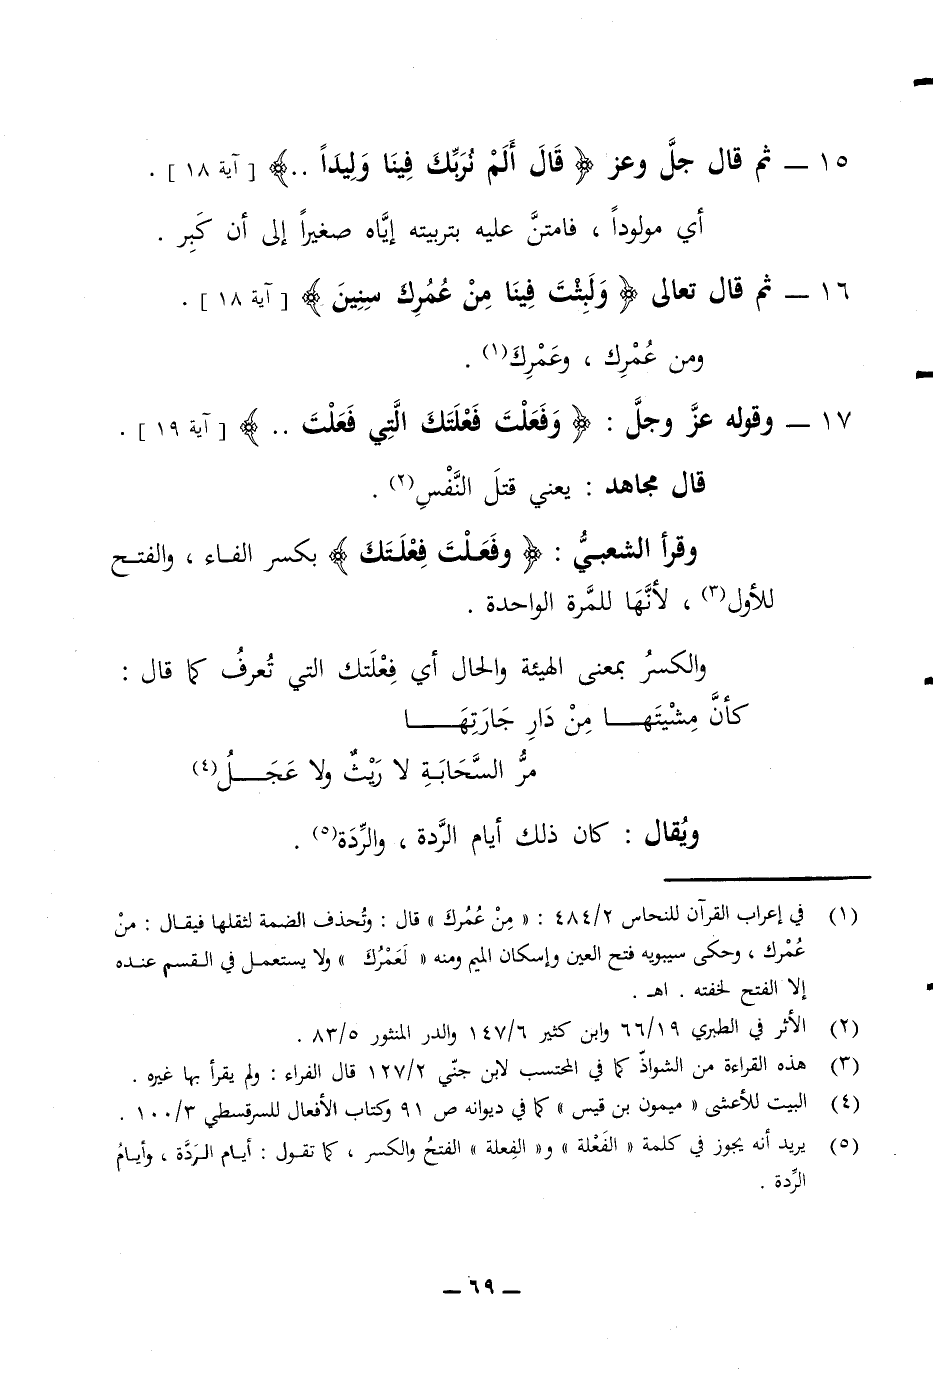 ١٥ ــ ثم قال جلَّ وعز ﴿ قَالَ أَلَمْ نُرَبِّكَ فِينَا وَلِيدَاً ..﴾ [ آية ١٨ ] .
أي مولوداً ، فامتنَّ عليه بتربيته إيَّاه صغيراً إلى أن كَبِر .
١٦ ــ ثم قال تعالى ﴿ وَلَبِثْتَ فِينَا مِنْ عُمُرِكَ سِنِينَ ﴾ [ آية ١٨ ] .
ومن عُمْرِك ، وعَمْرِكَ(١) .
١٧ ــ وقوله عزَّ وجلَّ : ﴿ وَفَعَلْتَ فَعْلَتَكَ الَّتِي فَعَلْتَ .. ﴾ [ آية ١٩ ] .
قال مجاهد : يعني قتلَ النَّفْسِ(٢) .
وقرأ الشعبيُّ : ﴿ وفَعَلْتَ فِعْلَتَكَ ﴾ بكسر الفاء ، والفتح
للأول(٣) ، لأنَّهَا للمَّرة الواحدة .
والكسرُ بمعنى الهيئة والحال أي فِعْلَتك التي تُعرفُ كما قال :
كأنَّ مِشْيَتَهـــا مِنْ دَارِ جَارَتِهَـــا
مرُّ السَّحَابَةِ لا رَيْثٌ ولا عَجَـــلُ(٤)
ويُقال : كان ذلك أيام الرَّدة ، والرِّدَة(٥) .
(١) في إعراب القرآن للنحاس ٤٨٤/٢ : « مِنْ عُمُركَ » قال : وتُحذف الضمة لثقلها فيقال : منْ
عُمْرك ، وحكى سيبويه فتح العين وإسكان الميم ومنه « لَعَمْرُكَ » ولا يستعمل في القسم عنده
إلا الفتح لخفته . اهـ .
(٢) الأثر في الطبري ٦٦/١٩ وابن كثير ١٤٧/٦ والدر المنثور ٨٣/٥ .
(٣) هذه القراءة من الشواذّ كما في المحتسب لابن جنّي ١٢٧/٢ قال الفراء : ولم يقرأ بها غيره .
(٤) البيت للأعشى « ميمون بن قيس » كما في ديوانه ص ٩١ وكتاب الأفعال للسرقسطي ١٠٠/٣ .
(٥) يريد أنه يجوز في كلمة « الفَعْلة » و« الفِعلة » الفتحُ والكسر ، كما تقول : أيام الرَدَّة ، وأيامُ
الرِّدة .
ــ ٦٩ ــ